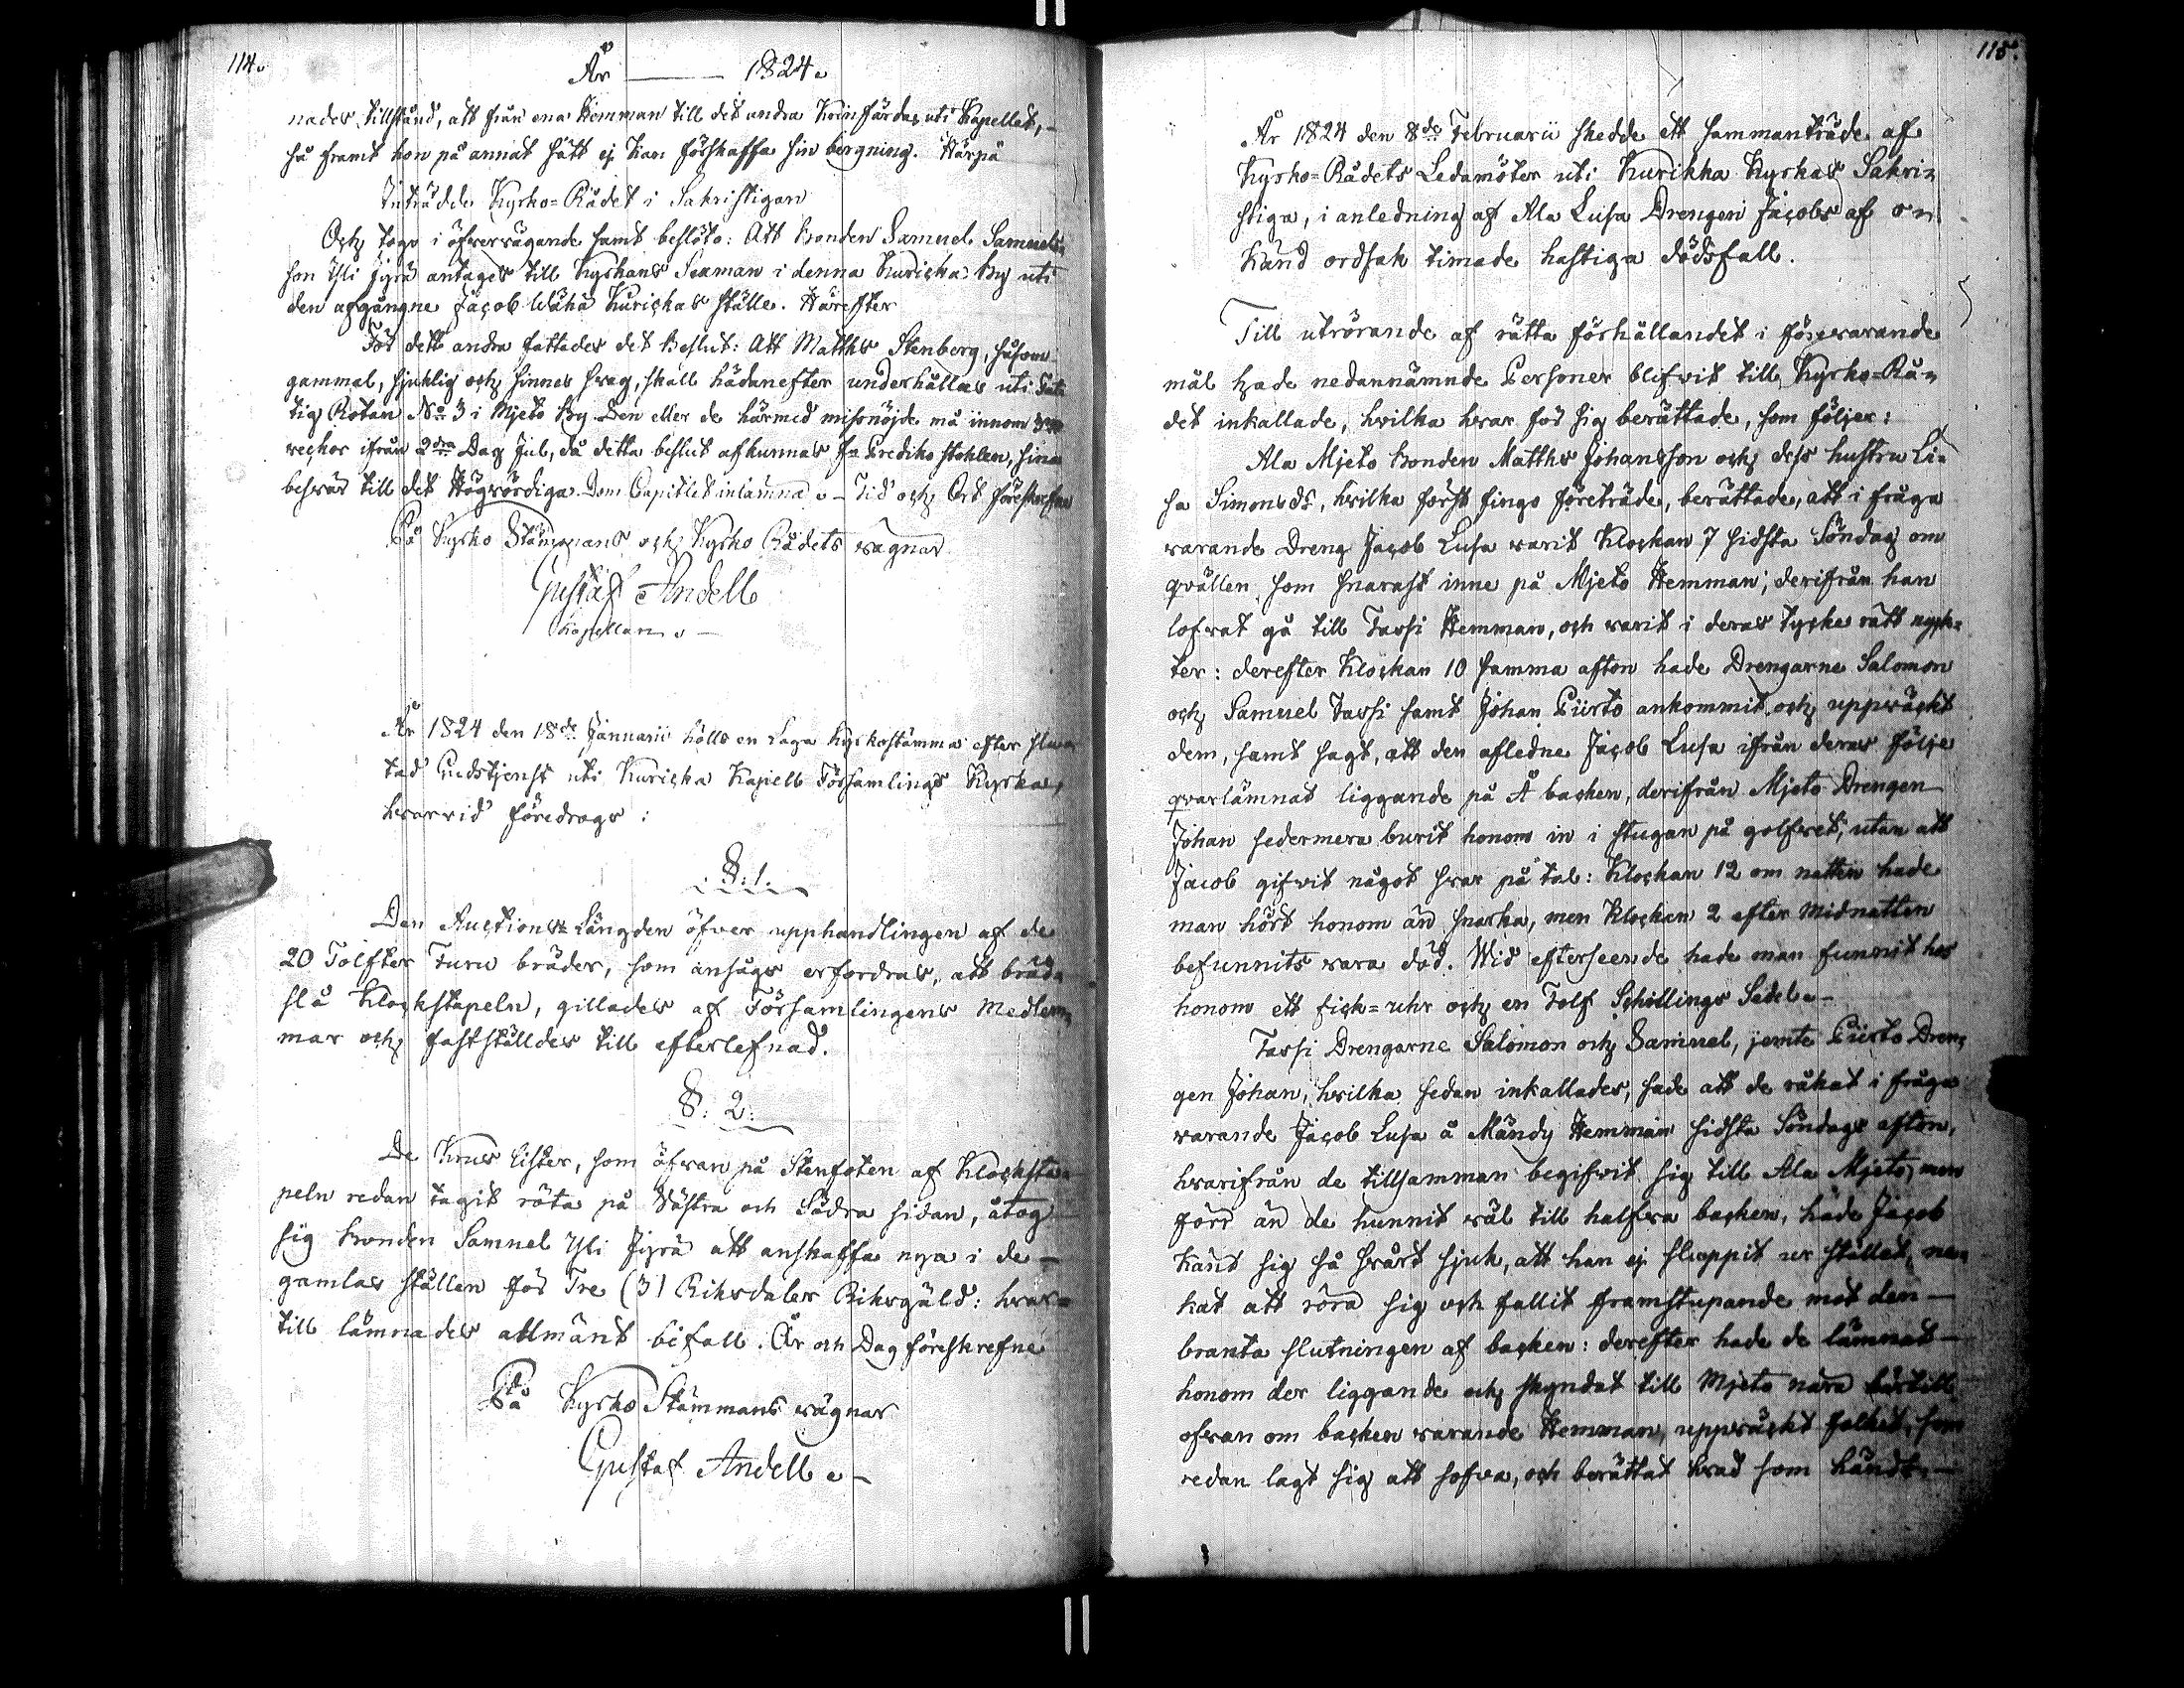 114.
År ——— 1824.
nades tillstånd, att från ena Hemman till det andra kringfärdas uti Kapellet, –
så framt hon på annat sätt ej kan förskaffa sin bergning. Härpå
Inträdde Kyrko-Rådet i Sakristigan
Och togo i öfvervägande samt beslöto: Att Bonden Samuel Samuels-
son Yli Jyrä antages till Kyrkans Sexman i denna Kuricka By uti
den afgångne Jacob Wähä Kurickas ställe. Härefter
För dett andra fattades det Beslut: Att Matths Stenberg, såsom
gammal, sjuklig och sinnes svag, skall hädanefter underhållas uti Fat-
tig Rotan No 3 i Mjeto By. Den eller de härmed misnöjde må innom
veckor ifrån 2dra Dag Jul, då detta beslut afkunnas fr Predikostohlen, sina
besvär till det Högvördiga Dom Capitlet inlämna. – Tid och Ort förskrefne
På Kyrko Stämmans och Kyrko Rådets vägnar
Gustaf Andell
Kapellan. –
År 1824 den 18de Januarii hölls en Laga Kyrkostämma efter slu-
tad Gudstjenst uti Kuricka Kapell Församlings Kyrka,
hvarvid föredrogs:
§. 1.
Den Auctions-Längden öfver upphandlingen af de
20 Tolfter Furu bräder, som ansågs erfordras, att bräd-
slå Klockstapeln, gillades af Församlingens Medlem-
mar och fastställdes till efterlefnad.
§. 2.
De Knus lister, som öfvan på Stenfoten af Klocksta-
peln redan tagit röta på Västra och Södra sidan, åtog
sig Bonden Samuel Yli Jyrä att anskaffa nya i de –
gamlas ställen för Tre (3) Riksdaler Riksgäld: hvar-
till lämnades allmänt bifall. År och Dag föreskrefne
På Kyrko Stämmans vägnar
Gustaf Andell. –
115.
År 1824 den 8de Februarii skedde ett sammanträde af
Kyrko-Rådets Ledamöter uti Kurikka Kyrkas Sakri-
stiga, i anledning af Ala Lusa Drengen Jacobs af o-
känd ordsak timade hastiga dödsfall.
Till utrörande af rätta förhållandet i förevarande
mål hade nedannämnde Personer blifvit till Kyrko-Rå-
det inkallade, hvilka hvar för sig berättade, som följer:
Ala Mjeto Bonden Matths Johansson och dess hustru Li-
sa Simonsdr, hvilka först fingo företräde, berättade, att i fråga
varande Dreng Jacob Lusa varit Klockan 7 sidsta Söndag om
qvällen som snarast inne på Mjeto Hemman; derifrån han
lofvat gå till Tassi Hemman, och varit i deras tycke rätt nyk-
ter: derefter Klockan 10 samma afton hade Drengarne Salomon
och Samuel Tassi samt Johan Piirto ankommit och uppväckt
dem, samt sagt, att den afledne Jacob Lusa ifrån deras följe
qvarlämnat liggande på Å backen, derifrån Mjeto Drengen
Johan sedermera burit honom in i stugan på golfvet, utan att
Jacob gifvit något svar på tal: Klockan 12 om natten hade
man hört honom än snarka, men Klockan 2 efter midnatten
befunnits vara död. Wid efterseende hade man funnit hos
honom ett fick-uhr och en Tolf Schillings Sedel. –
Tassi Drengarne Salomon och Samuel, jemte Piirto Dren-
gen Johan, hvilka sedan inkallades, sade att de råkat i fråga
varande Jacob Lusa å Mändy Hemman sidsta Söndags afton,
hvarifrån de tillsamman begifvit sig till Ala Mjeto, men
förr än de hunnit väl till halfva backen, hade Jacob
känt sig så svårt sjuk, att han ej sluppit ur stället,
kat att röra sig och fallit framstupande mot den –
branta slutningen af backen: derefter hade de lämnat –
honom der liggande och skyndat till Mjeto nära
ofvan om backen varande Hemman, uppväckt folket, som
redan lagt sig att sofva, och berättat hvad som händt, –